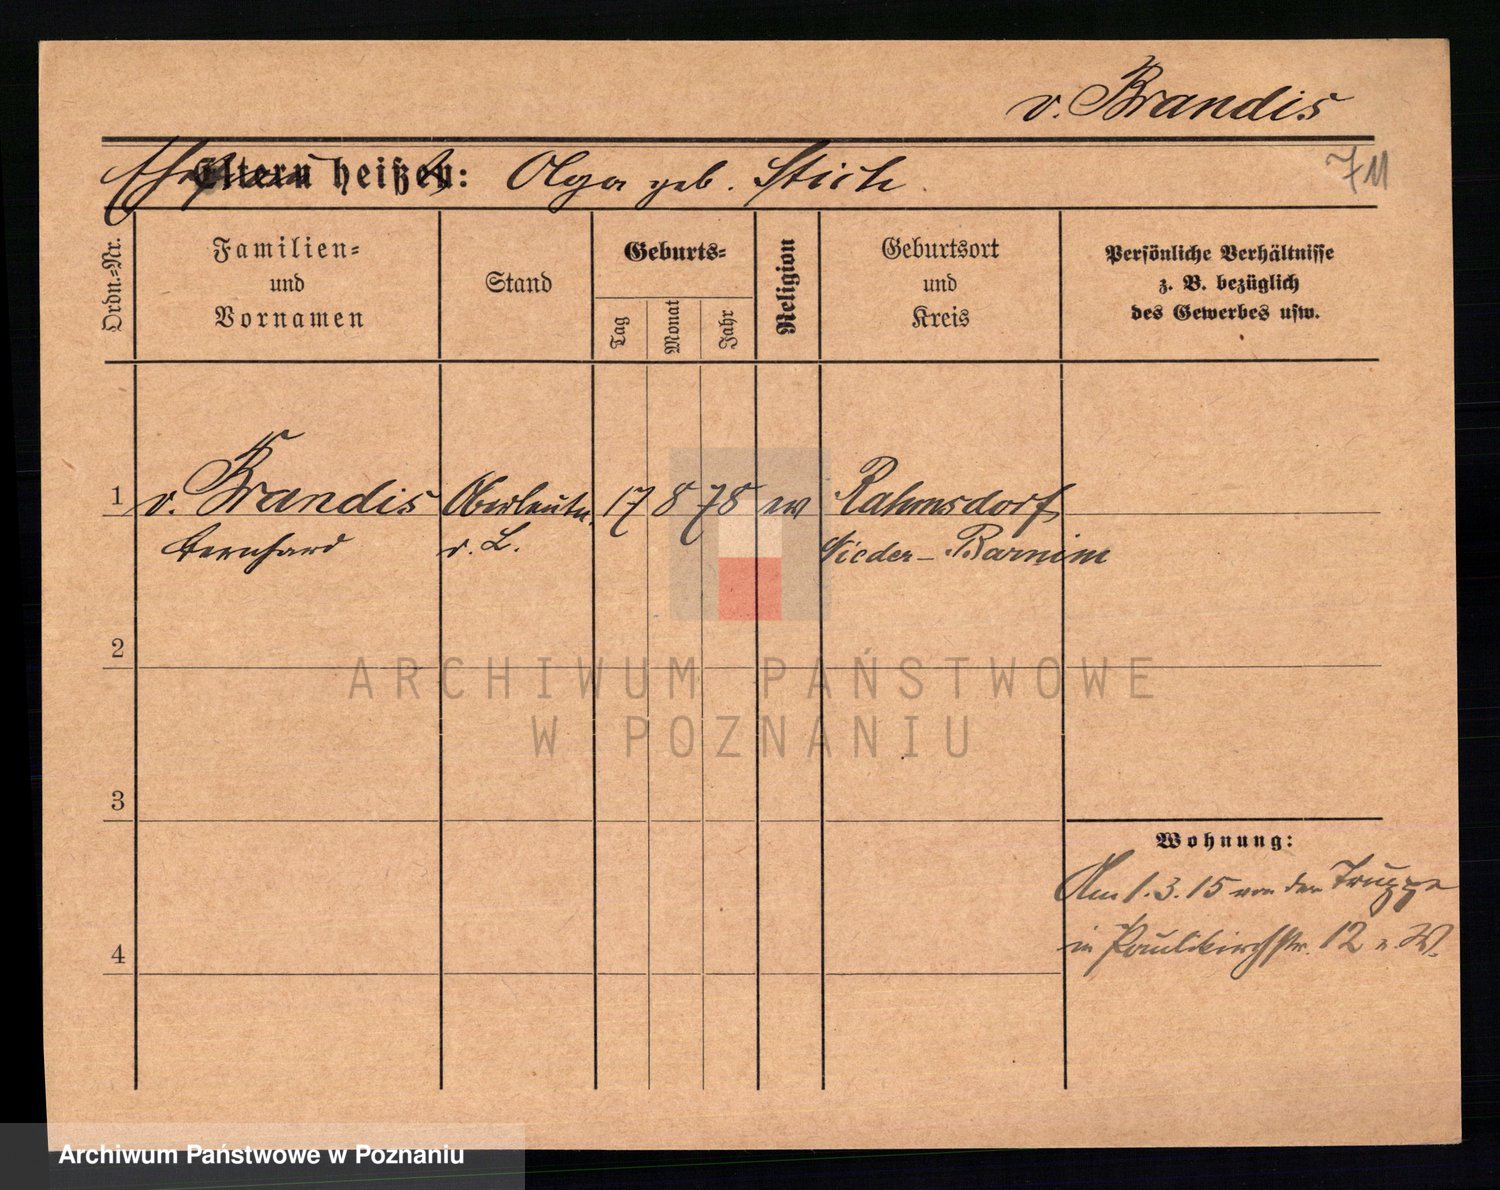 v. Brandis
Eltern heißen: Olga geb. Stich
711
Ordn.-Nr.
Familien-
und
Vornamen
Stand
Geburts-
Tag
Monat
Jahr
Religion
Geburtsort
und
Kreis
Persönliche Verhältnisse
z. B. bezüglich
des Gewerbes usw.
1 v. Brandis Oberleutn. 17 8 78 ev Rahmsdorf
Bernhard d. L. Nieder-Barnim
2
3
Wohnung:
Am 1.3.15 von der Truppe
in Paulikirchstr. 12 v. W.
4
ARCHIWUM PAŃSTWOWE
W POZNANIU
Archiwum Państwowe w Poznaniu